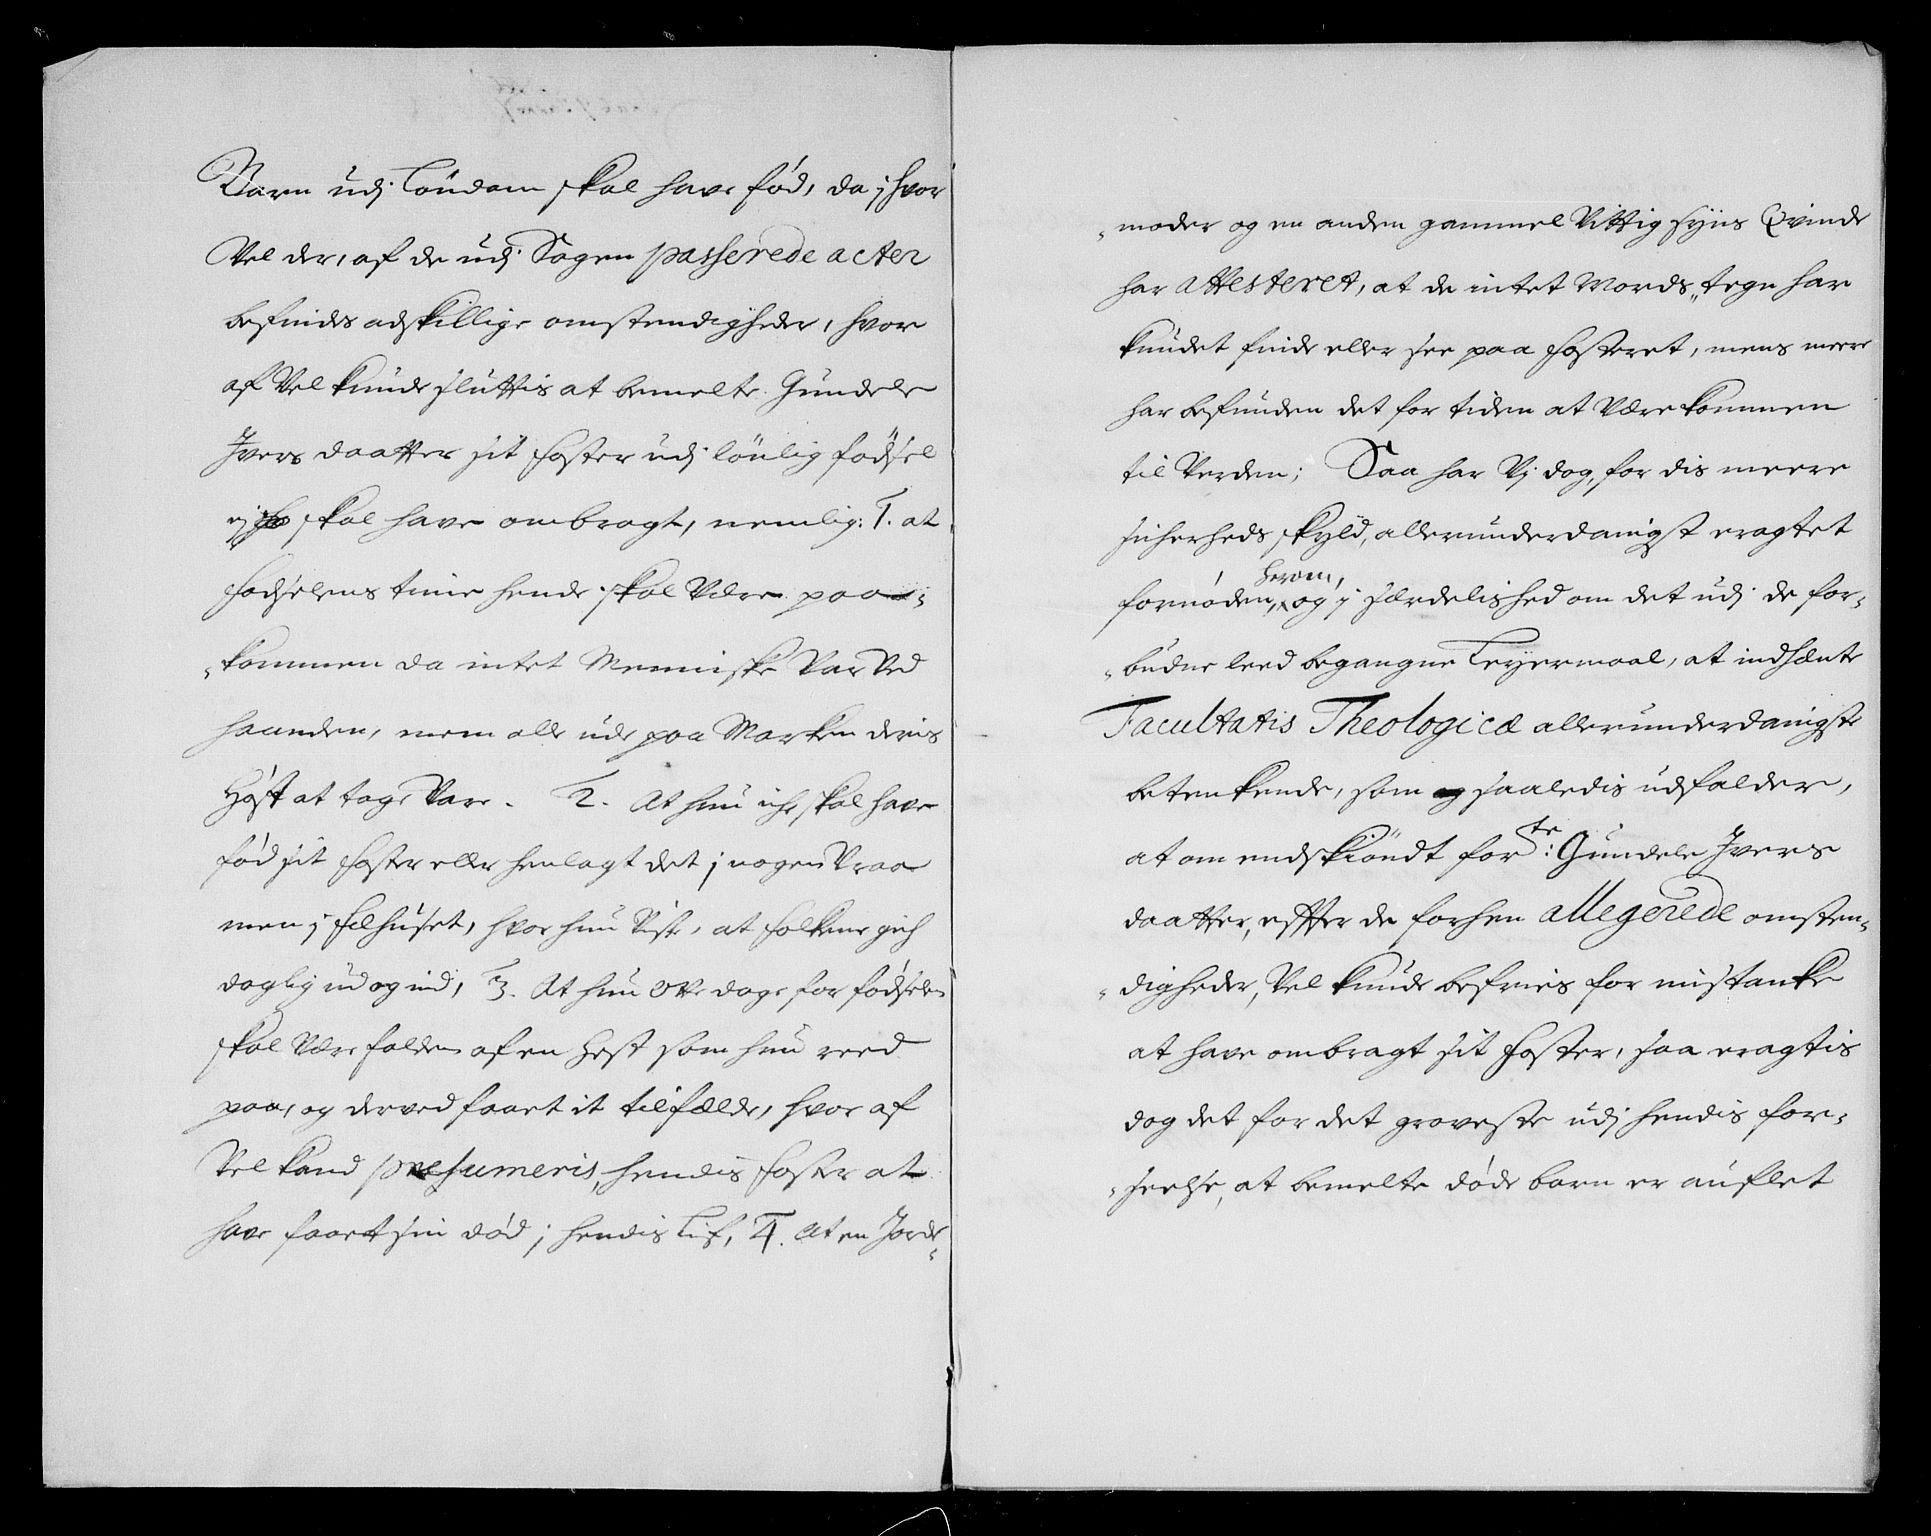 Barn udj Løndom skal have fød, da j hvor
Vel der, af de udj Sagen passerede acter
befindes adskillige omstendigheder, hvor
af Vel kunde sluttis at bemelte Gundele
Ivers daatter sit foster udj lønlig fødsel
ej skal have ombragt, nemlig: 1. at
fødselens time hende skal Være paa-
-kommen da intet Menniske Var Ved
haanden, mem alle ude paa Marken deris
Høst at tage Vare. 2. At hun iche skal have
fød sit foster eller henlagt det j nogen Vraa
men j fæhuset, hvor hun Viste, at folkene gich
daglig ud og ind, 3. At hun otte dage for fødselen
skal Være falden af en Hest som hun reed
paa, og derved faaet it tilfælde, hvor af
Vel kand præsumeris, hendis foster at
have faaet sin død j hendis Lif, 4. At en Jorde-
-moder og en anden gammel Vittig syns Qvinde
har attesteret, at de intet Mords-tegn har
kundet finde eller see paa fosteret, mens meere
har befunden det for tiden at Være kommen
til Verden; Saa har Vj dog, for dis meere
sicherheds skyld, allerunderdanigst eragtet
fornøden, herom, og j særdelished om det udj de for-
-budne leed begangne Leyermaal, at indhænte
Facultatis Theologicæ allerunderdanigste
betenkende, som saaledis udfalder,
at om endskiøndt forte: Gundele Ivers
daatter, effter de forhen allegerede omsten-
-digheder, Vel kunde befries for mistanke
at have ombragt sit foster, saa eragtis
dog det for det groveste udj hendis for-
-seelse, at bemelte døde barn er auflet